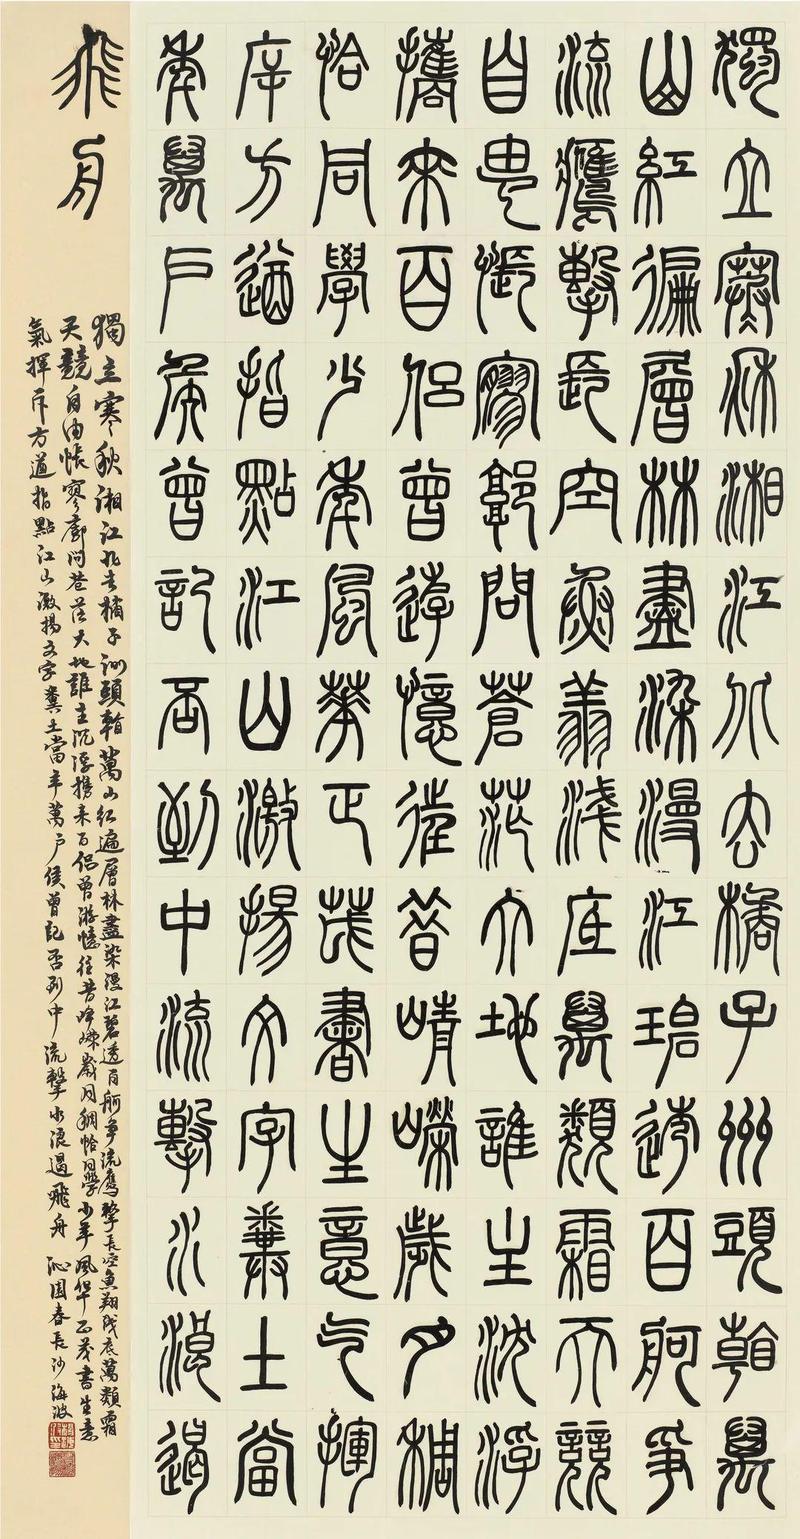 獨立寒秋湘江北去橘子州頭看萬
山紅徧層林盡染漫江碧透百舸爭
流鷹擊長空魚翔淺底萬類霜天競
自由悵寥郭問蒼茫大地誰主沈浮
攜來百侶曾遊憶往昔崝嶸歲月稠
恰同學少年風華正茂書生意气揮
斥方遒指點江山激揚文字糞土當
年萬戶侯曾記否到中流擊水浪遏
飛舟
獨立寒秋湘江北去橘子洲頭看萬山紅遍層林盡染漫江碧透百舸爭流鷹擊長空魚翔淺底萬類霜
天競自由悵寥廓問蒼茫大地誰主沉浮携來百侶曾游憶往昔崢嶸歲月稠恰同學少年風华正茂書生意
氣揮斥方遒指點江山激揚文字糞土當年萬戶侯曾記否到中流擊水浪遏飛舟 沁園春長沙 海波